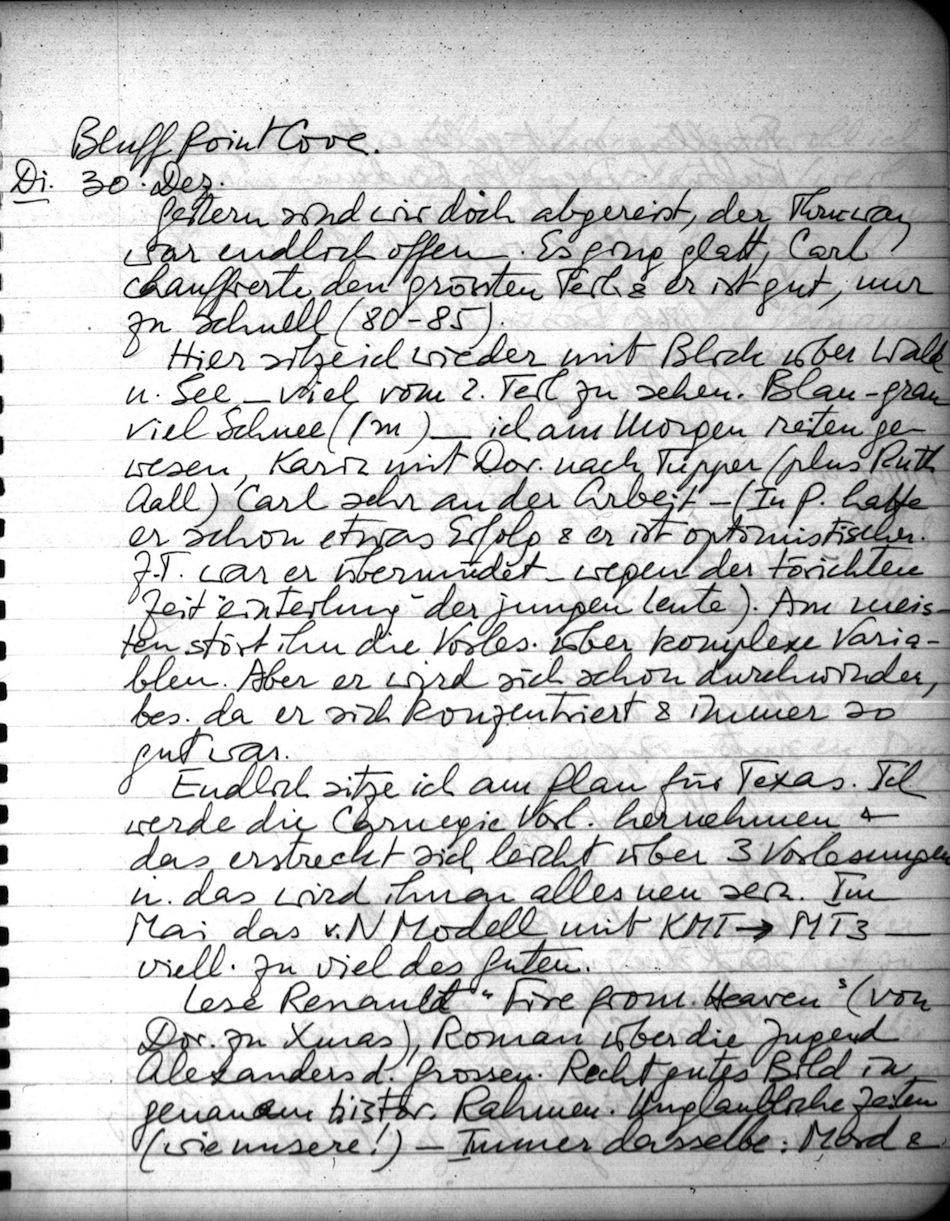 Bluff Point Cove.
Di. 30. Dez.
Gestern sind wir doch abgereist, der Thruway
war endlich offen. Es ging glatt, Carl
chauffierte den grössten Teil & er ist gut, nur
zu schnell (80-85).
Hier sitze ich wieder mit Blick über Wald
u. See – viel vom 2. Teil zu sehen. Blau-grau
viel Schnee (1m) – ich am Morgen reiten ge-
wesen, Karin mit Dor. nach Tupper (plus Ruth
Aall) Carl sehr an der Arbeit – (In P. hatte
er schon etwas Erfolg & er ist optimistischer.
Z.T. war er übermüdet – wegen der törichten
Zeit "einteilung" der jungen Leute). Am meis-
ten stört ihn die Vorles. über komplexe Varia-
blen. Aber er wird sich schon durchwinden,
bes. da er sich konzentriert & immer so
gut war.
Endlich sitze ich am Plan für Texas. Ich
werde die Carnegie Vorl. hernehmen &
das erstreckt sich leicht über 3 Vorlesungen
u. das wird ihnen alles neu sein. Im
Mai das v.N Modell mit KMT → MT3 –
viell. zu viel des guten.
Lese Renault "Fire from Heaven" (von
Dor. zu Xmas), Roman über die Jugend
Alexanders d. Grossen. Recht gutes Bild in
genauem histor. Rahmen. Unglaubliche Zeiten
(wie unsere!) – Immer dasselbe: Mord &